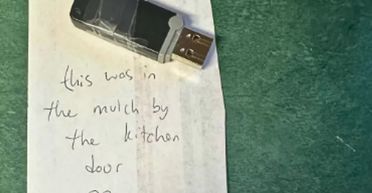 this was in
the mulch by
the kitchen
door